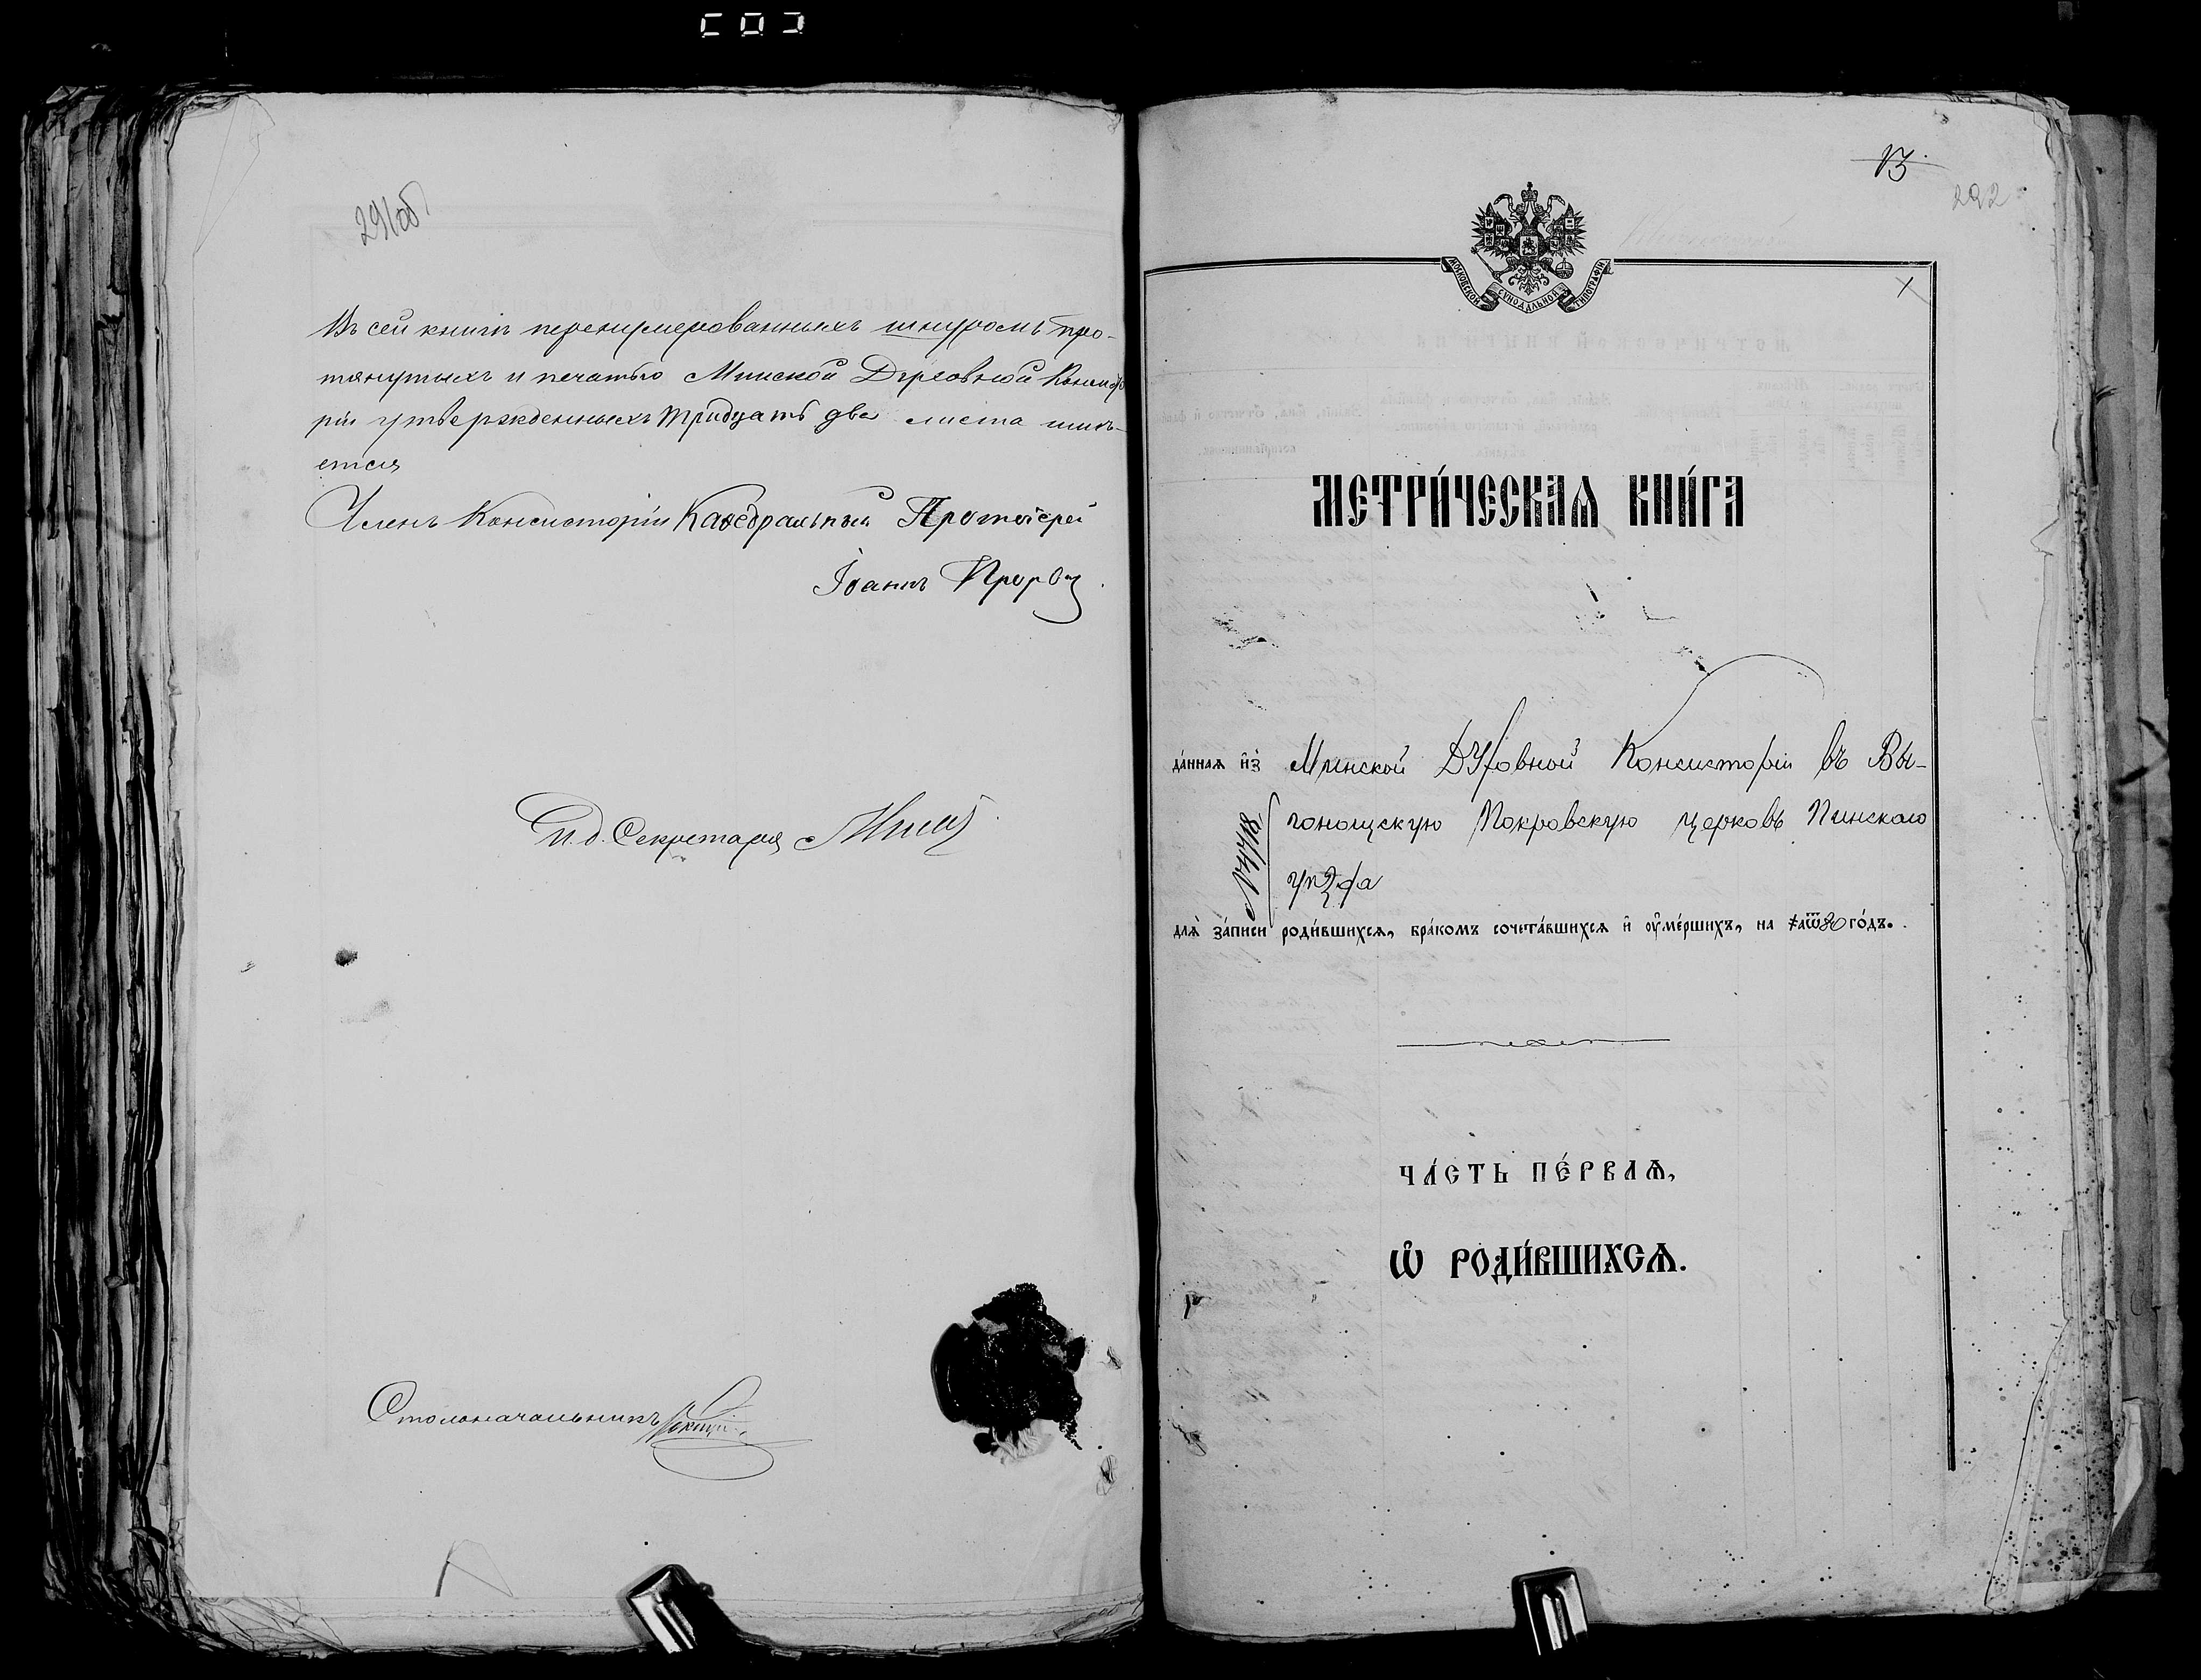 291об
Въ сей книгѣ перенумерованныхъ шнуромъ про-
тянутыхъ и печатью Минской Духовной Консисто
ріи утвержденныхъ тридцать два листа имѣ-
ется
Членъ Консисторіи Каѳедральный Протоіерей
Іоаннъ
И. д. Секретаря
Столоначальникъ
13
292
1
МОСКОВСКОЙ СѴНОДАЛЬНОЙ ТИПОГРАФІИ
МЕТРИ́ЧЕСКАѦ КНИ́ГА
да́ннаѧ и҆з̾ Минской Духовной Консисторіи въ Вы-
гонощскую Покровскую церковь Пинскаго
уѣзда
длѧ̀ за́писи роди́вшихсѧ, бра́комъ сочета́вшихсѧ и҆ ᲂу҆ме́ршихъ, на ҂аѿ80 го́дъ.
ЧА́СТЬ ПЕ́РВАѦ,
Ѽ РОДИ́ВШИХСѦ.